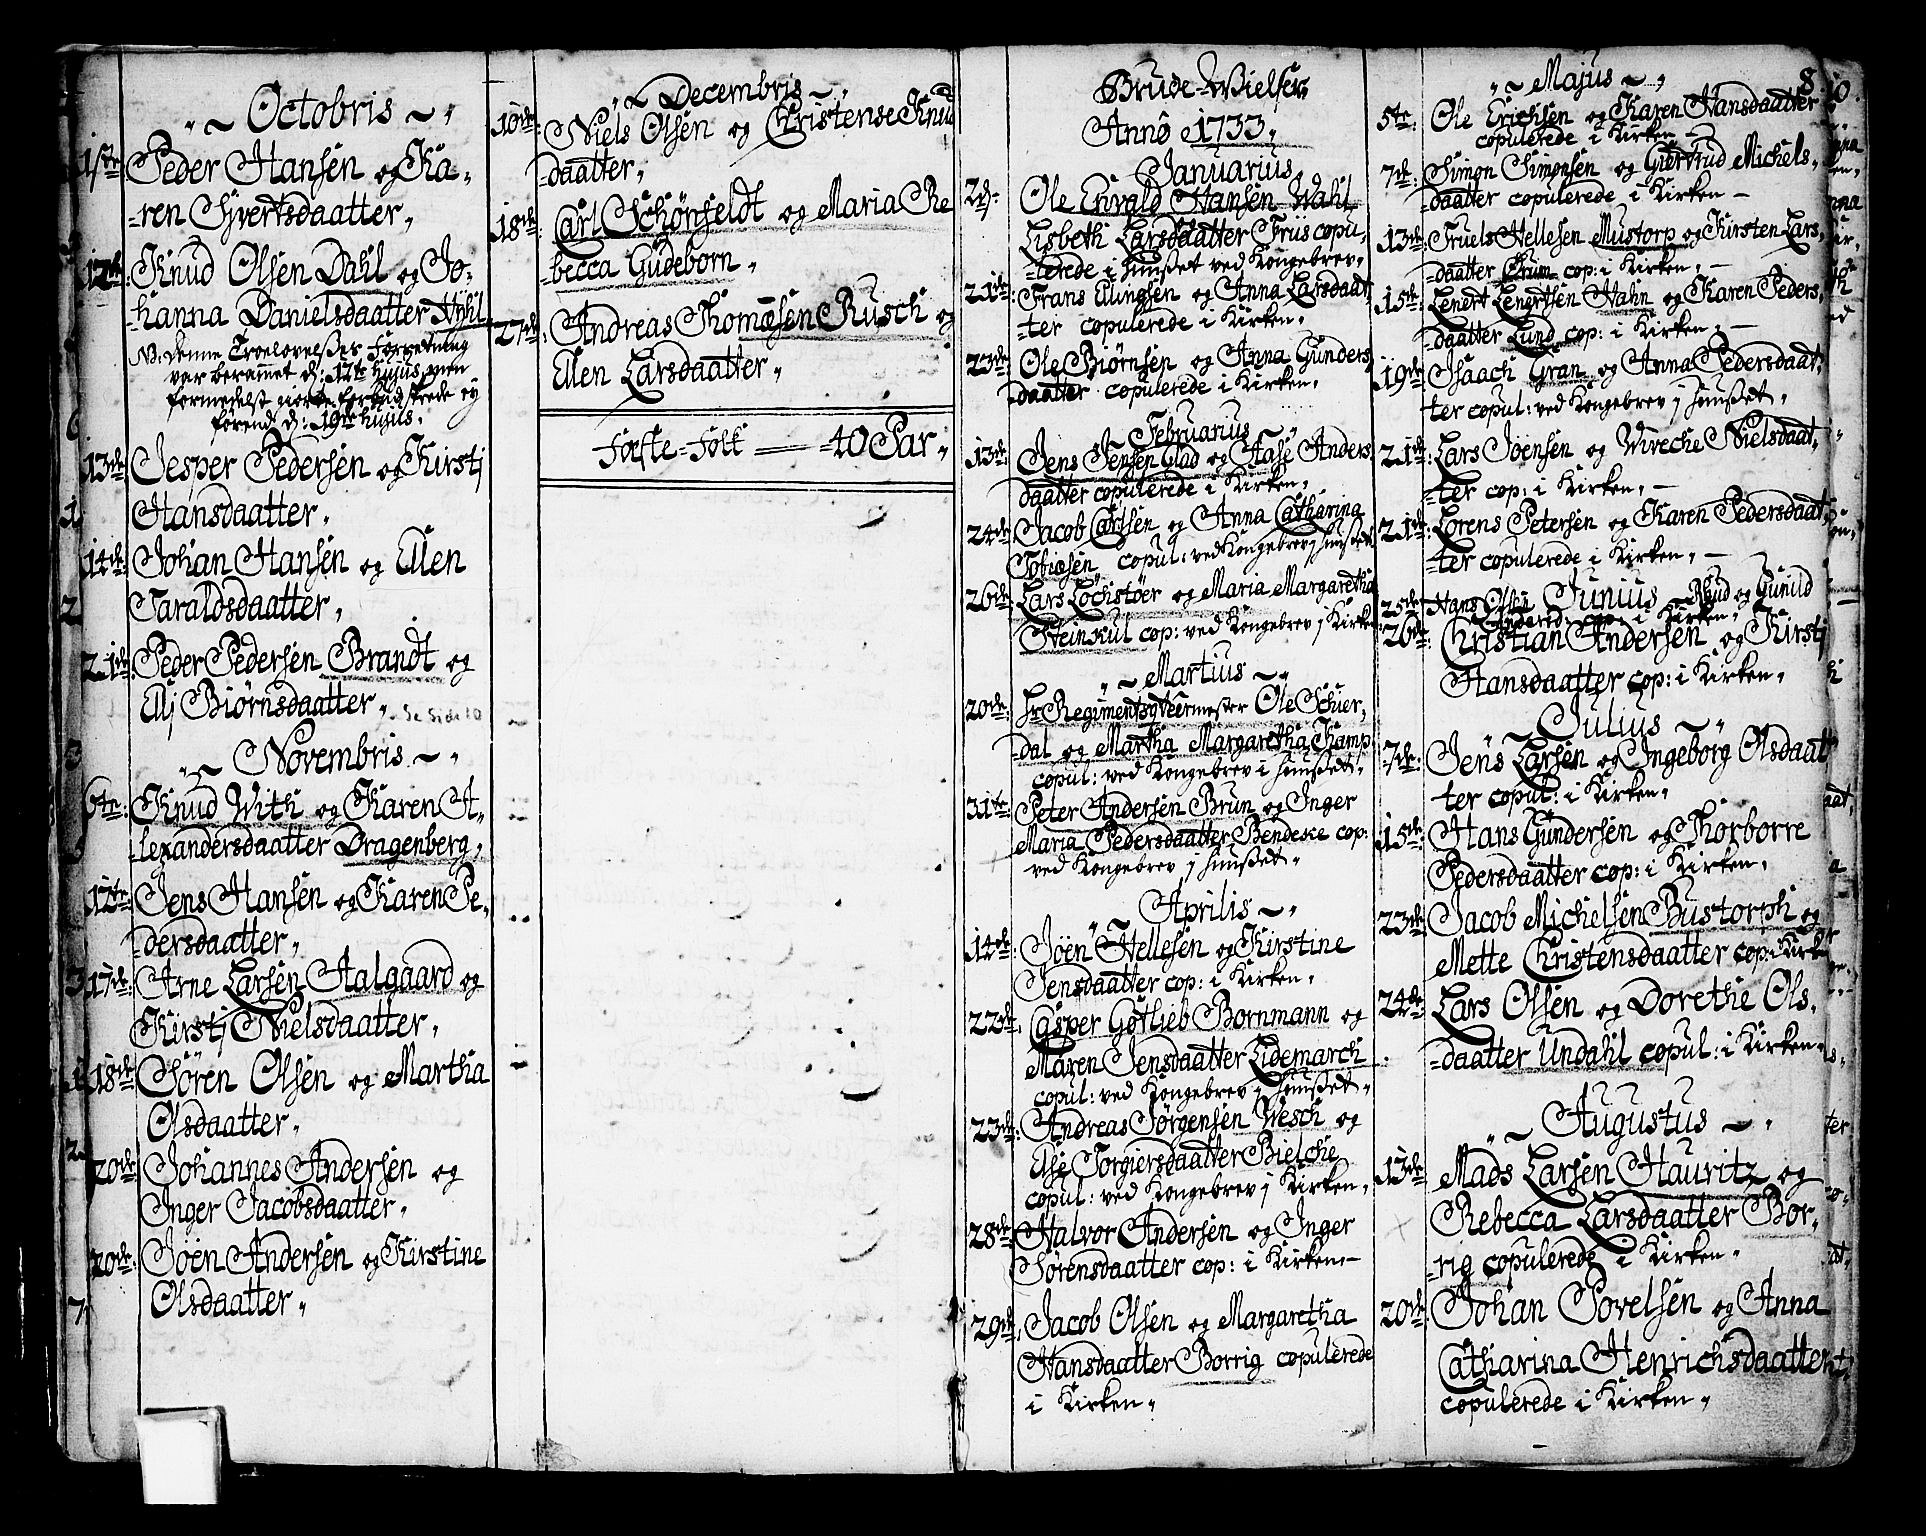 „~ Octobris ~„
1ste Peder Hansen og Ka-
-ren Sjvertsdaatter„
12te Knud Olsen Dahl og Jo-
-hanna Danielsdaatter Hyhl
NB: Denne Troelovelses Forretning
var beramet d: 12te hujus, men
formedelst
førend d: 19de hujus.
13de Jesper Pedersen og Kirstj
Hansdaatter„
14de Johan Hansen og Ellen
Taraldsdaatter„
21de Peder Pedersen Brandt og
Ellj Biørnsdaatter„
Se side 10
„~ Novembris ~„
6te Knud With og Karen A-
-lexandersdaatter Dragenberg„
12te Jens Hansen og Karen Pe-
-dersdaatter„
17de Arne Larsen Aalgaard og
Kirstj Nielsdaatter„
18de Søren Olsen og Martha
Olsdaatter„
20de Johannes Andersen og
Inger Jacobsdaatter„
20de Joen Andersen og Kirstine
Olsdaatter„
„~ Decembris ~„
10de Niels Olsen og Christense Knud
-daatter„
18de Carl Schønfeldt og Maria Re
-becca Gudeborn„
27de Andreas Thomæsen Rusch og
Ellen Larsdaatter„
Fæste-Folk — 40 Par„
Brude-Wielser
Annô 1733„
Januarius
2d: Ole Enwald Hansen Wahl
Lisbeth Larsdaatter Friis copu-
-lerede i Huuset ved Kongebrev„
21de Frans Ellingsen og Anna Larsdaat-
-ter copulerede i Kirken„
23de Ole Biørnsen og Anna Gunders-
daatter copulerede i Kirken„
„~ Februarius ~„
13de Jens Jensen Clad og Aase Anders
daatter copulerede i Kirken„
24de Jacob Carlsen og Anna Catharina
Tobiæsen copul: ved Kongebrev j Huuset
26de Lars Lochstøer og Maria Margaretha
Steinkul cop: ved Kongebrev j Kirken
„~ Martius ~„
20de Hr Regimentsqveermester Ole Schier-
dal og Martha Margaretha Kamp
copul: ved Kongebrev i Huuset„
31te Peter Andersen Brun og Inger
Maria Pedersdaatter Bendeke cop:
ved Kongebrev j Huuset„
„~ Aprilis ~„
14de Joen Hellesen og Kirstine
Jensdaatter cop: i Kirken„
22de Casper Gotlieb Bornmann og
Maren Jensdaatter Lidemarch
copul: ved Kongebrev j Huuset„
23de Andreas Jørgensen Wesch og
Else Torgiersdaatter Bielche
copul: ved Kongebrev j Kirken„
28de Halvor Andersen og Inger
Sørensdaatter cop: i Kirken—
29de Jacob Olsen og Margaretha
Hansdaatter Borrig copulerede
i Kirken„
8.
„~ Majus ~„
5te Ole Erichsen og Karen Hansdaatter
copulerede i Kirken —
7de Simon Simonsen og Giertrud Michels-
daatter copulerede i Kirken —
13de Truels Hellesen Mustorp og Kirsten Lars-
-daatter Crum cop: i Kirken„ —
15de Lenert Lenertsen Hahn og Karen Peders-
daatter Lund cop: i Kirken„ —
19de Isaach Gran og Anna Pedersdaat-
ter copul: ved Kongebrev j Huuset„
21de Lars Joensen og Wiveche Nielsdaat-
-ter cop: i Kirken„ —
21de Lorens Petersen og Karen Pedersdaat-
-ter copulerede i Kirken„ —
Junius
25de Hans Olsen Ruud og Gunild
cop: i Kirken„
26de Christian Andersen og Kirstj
Hansdaatter cop: i Kirken„
„~ Julius ~„
7de Jens Larsen og Ingeborg Olsdaat
ter copul: i Kirken„
15de Hans Gundersen og Thorborre
Pedersdaatter cop: i Kirken„
23de Jacob Michelsen Bustorph og
Mette Christensdaatter cop: i Kirk
24de Lars Olsen og Dorethe Ols-
-daatter Undahl copul: i Kirken„
„~ Augustus ~„
13de Mads Larsen Hauritz og
Rebecca Larsdaatter Bor-
-rig copulerede i Kirken„
20de Johan Povelsen og Anna
Catharina Henrichsdaatter
copulerede i Kirken„